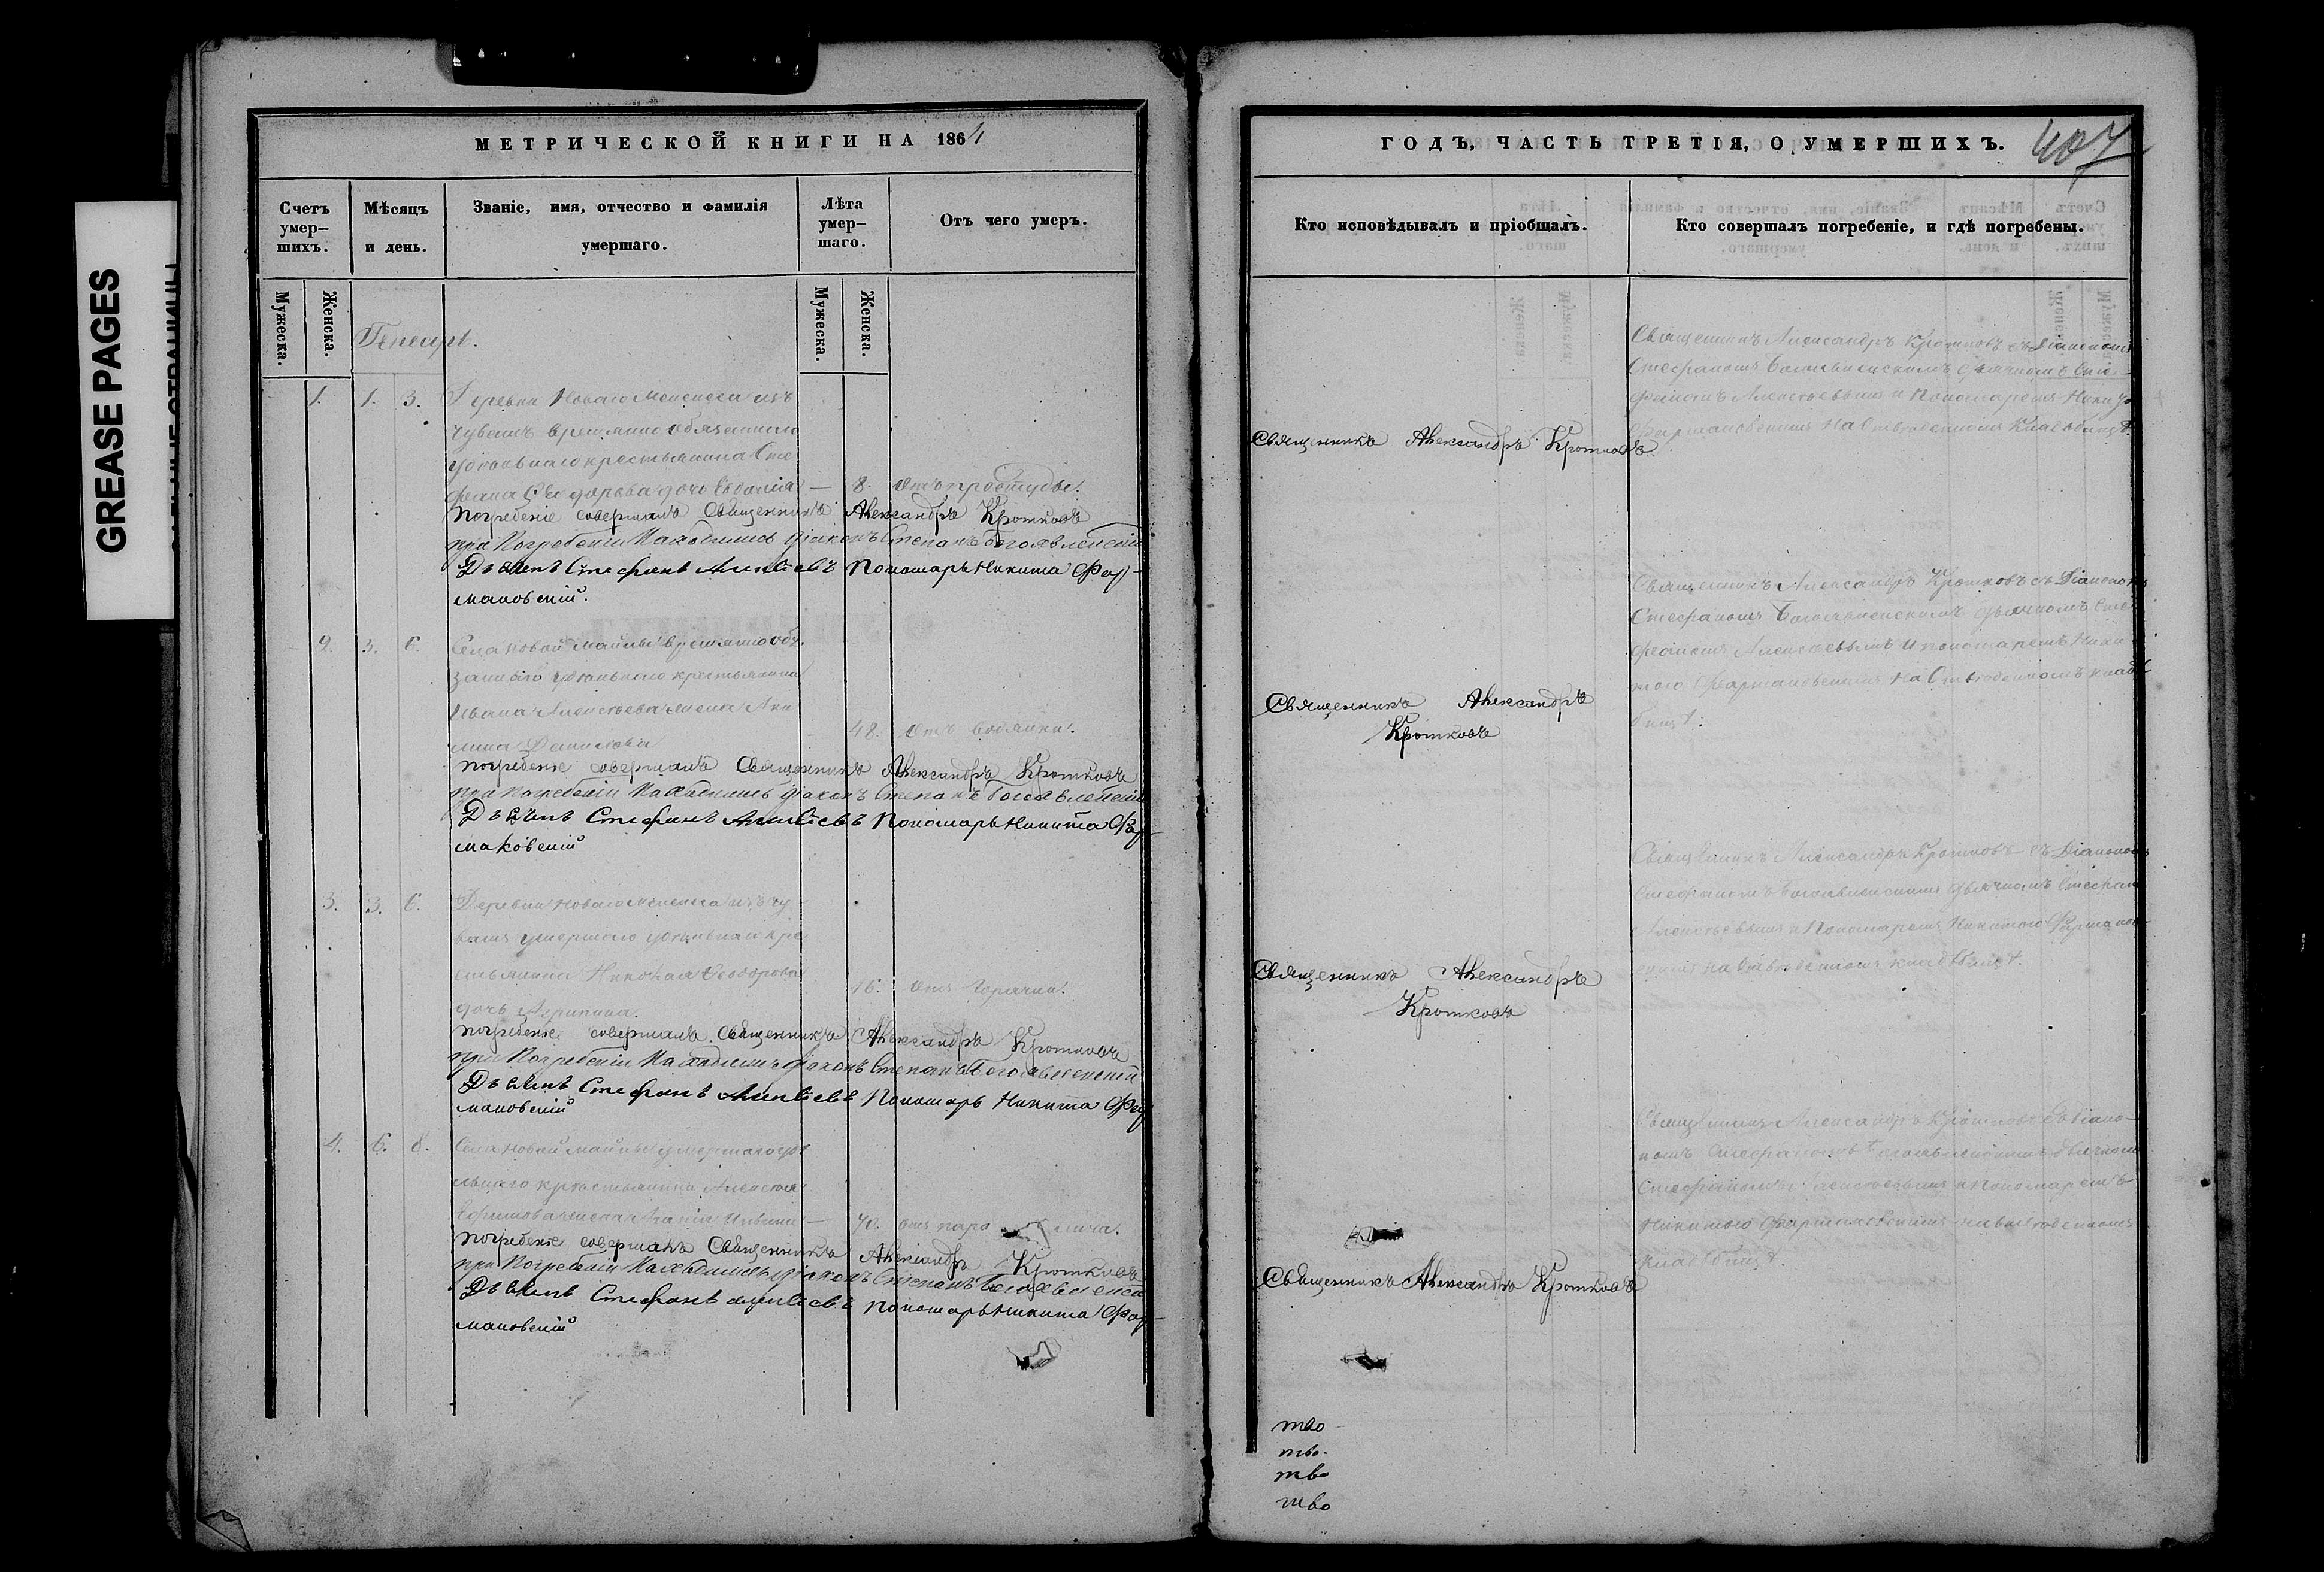 GREASE PAGES
МЕТРИЧЕСКОЙ КНИГИ НА 1864
Счетъ умер-шихъ.
Мѣсяцъ и день.
Званіе, имя, отчество и фамилія умершаго.
Лѣта умер-шаго.
Отъ чего умеръ.
Мужеска.
Женска.
Мужеска.
Женска.
Генварь.
1. 1. 3. Деревни Новаго
чувашъ временно обязаннаго
удѣльнаго крестьянина Сте
фана Ѳеодорова дочь Евдокія — 8. отъ простуды.
Погребеніе совершалъ Священникъ Александръ Кротковъ
при Погребеніи Находились діаконъ Степанъ Богоявленскій
Дьячекъ Стефанъ Алексѣевъ Пономарь Никита Фар-
маковскій.
2. 3. 6. Села Новой Майны временно обя
заннаго удѣльнаго крестьянина
Ивана Алексѣева жена Аку
лина Данилова 48. отъ водянки.
погребеніе совершалъ Священникъ Александръ Кротковъ
при погребеніи Находились діаконъ Степанъ Богоявленскій
Дьячекъ Стефанъ Алексѣевъ Пономарь Никита Фар-
маковскій
3. 3. 6. Деревни Новаго изъ чу
вашъ умершаго удѣльнаго кре
стьянина Николая Ѳеодорова
дочь Агрипина. 16. отъ Горячки.
погребеніе совершалъ Священникъ Александръ Кротковъ
при Погребеніи Находились діаконъ Степанъ Богоявленскій
Дьячекъ Стефанъ Алексѣевъ Пономарь Никита Фар
маковскій
4. 6. 8. Села Новой Майны умершаго удѣ
льнаго крестьянина Алексѣя
Ефимова жена — 70. отъ пара лича.
погребеніе совершалъ Священникъ Александръ Кротковъ
при Погребеніи Находились діаконъ Степанъ Богоявленск
Дьячекъ Стефанъ Алексѣевъ пономарь Никита Фар-
маковскій
ГОДЪ, ЧАСТЬ ТРЕТІЯ, О УМЕРШИХЪ.
407
Кто исповѣдывалъ и пріобщалъ.
Кто совершалъ погребеніе, и гдѣ погребены.
Священникъ Александръ Кротковъ
Священникъ Александръ Кротковъ съ Діакономъ
Стефаномъ Богоявленскимъ дьячкомъ Сте-
фаномъ Алексѣевымъ и Пономаремъ Никитою
Фармаковскимъ на отведенномъ Кладбищѣ.
Священникъ Александръ
Кротковъ
Священникъ Александръ Кротковъ съ Діакономъ
Стефаномъ Богоявленскимъ дьячкомъ Сте
фаномъ Алексѣевымъ и пономаремъ Ники
тою Фармаковскимъ на Отведенномъ клад
бищѣ.
Священникъ Александръ
Кротковъ
Священникъ Александръ Кротковъ съ Діакономъ
Стефаномъ Богоявленскимъ дьячкомъ Стефаном
Алексѣевымъ и Пономаремъ Никитою Фармаков
скимъ на Отведенномъ кладбищѣ.
Священникъ Александръ Кротковъ
Священникъ Александръ Кротковъ съ Діако-
номъ Стефаномъ Богоявленскимъ дьячкомъ
Стефаномъ Алексѣевымъ и Пономаремъ
Никитою Фармаковскимъ на отведенномъ
кладбищѣ.
тво
тво.
тво
тво